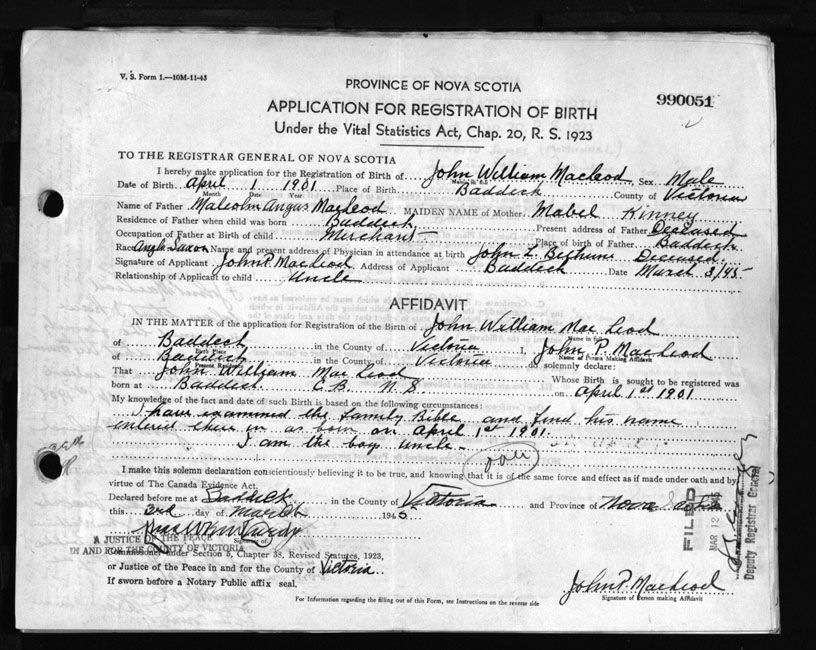 V. S. Form 1.—10M-11-43
PROVINCE OF NOVA SCOTIA
990051
APPLICATION FOR REGISTRATION OF BIRTH
Under the Vital Statistics Act, Chap. 20, R. S. 1923
TO THE REGISTRAR GENERAL OF NOVA SCOTIA
I hereby make application for the Registration of Birth of John William Macleod Sex Male
Name in full
Date of Birth April 1 1901 Place of Birth Baddeck County of Victoria
Month Day Year
Name of Father Malcolm Angus MacLeod MAIDEN NAME of Mother Mabel Kinney
Residence of Father when child was born Baddeck Present address of Father Deceased
Occupation of Father at Birth of child Merchant Place of birth of Father Baddeck
Race Anglo Saxon Name and present address of Physician in attendance at birth John L. Bethune Deceased.
Signature of Applicant John P. MacLeod Address of Applicant Baddeck Date March 3/45
Relationship of Applicant to child Uncle
AFFIDAVIT
IN THE MATTER of the application for Registration of the Birth of John William Mac Leod
Name in full
of Baddeck in the County of Victoria I, John P. MacLeod
Birth Place Name of Person Making Affidavit
of Baddeck in the County of Victoria do solemnly declare:
Present Residence
That John William Mac Leod Whose Birth is sought to be registered was
born at Baddeck C.B. N.S. on April 1st 1901
My knowledge of the fact and date of such Birth is based on the following circumstances:
I have examined the family Bible and find his name
entered there in as born on April 1st 1901.
I am the boy uncle
I make this solemn declaration conscientiously believing it to be true, and knowing that it is of the same force and effect as if made under oath and by
virtue of The Canada Evidence Act.
Declared before me at Baddeck in the County of Victoria and Province of Nova Scotia
this 3rd day of March 1945
A JUSTICE OF THE PEACE
IN AND FOR THE COUNTY OF VICTORIA
Commissioner under Section 5, Chapter 38, Revised Statutes, 1923,
or Justice of the Peace in and for the County of Victoria
If sworn before a Notary Public affix seal.
FILED
MAR 12 1945
Deputy Registrar General
John P. MacLeod
Signature of Person making Affidavit
For Information regarding the filling out of this Form, see Instructions on the reverse side